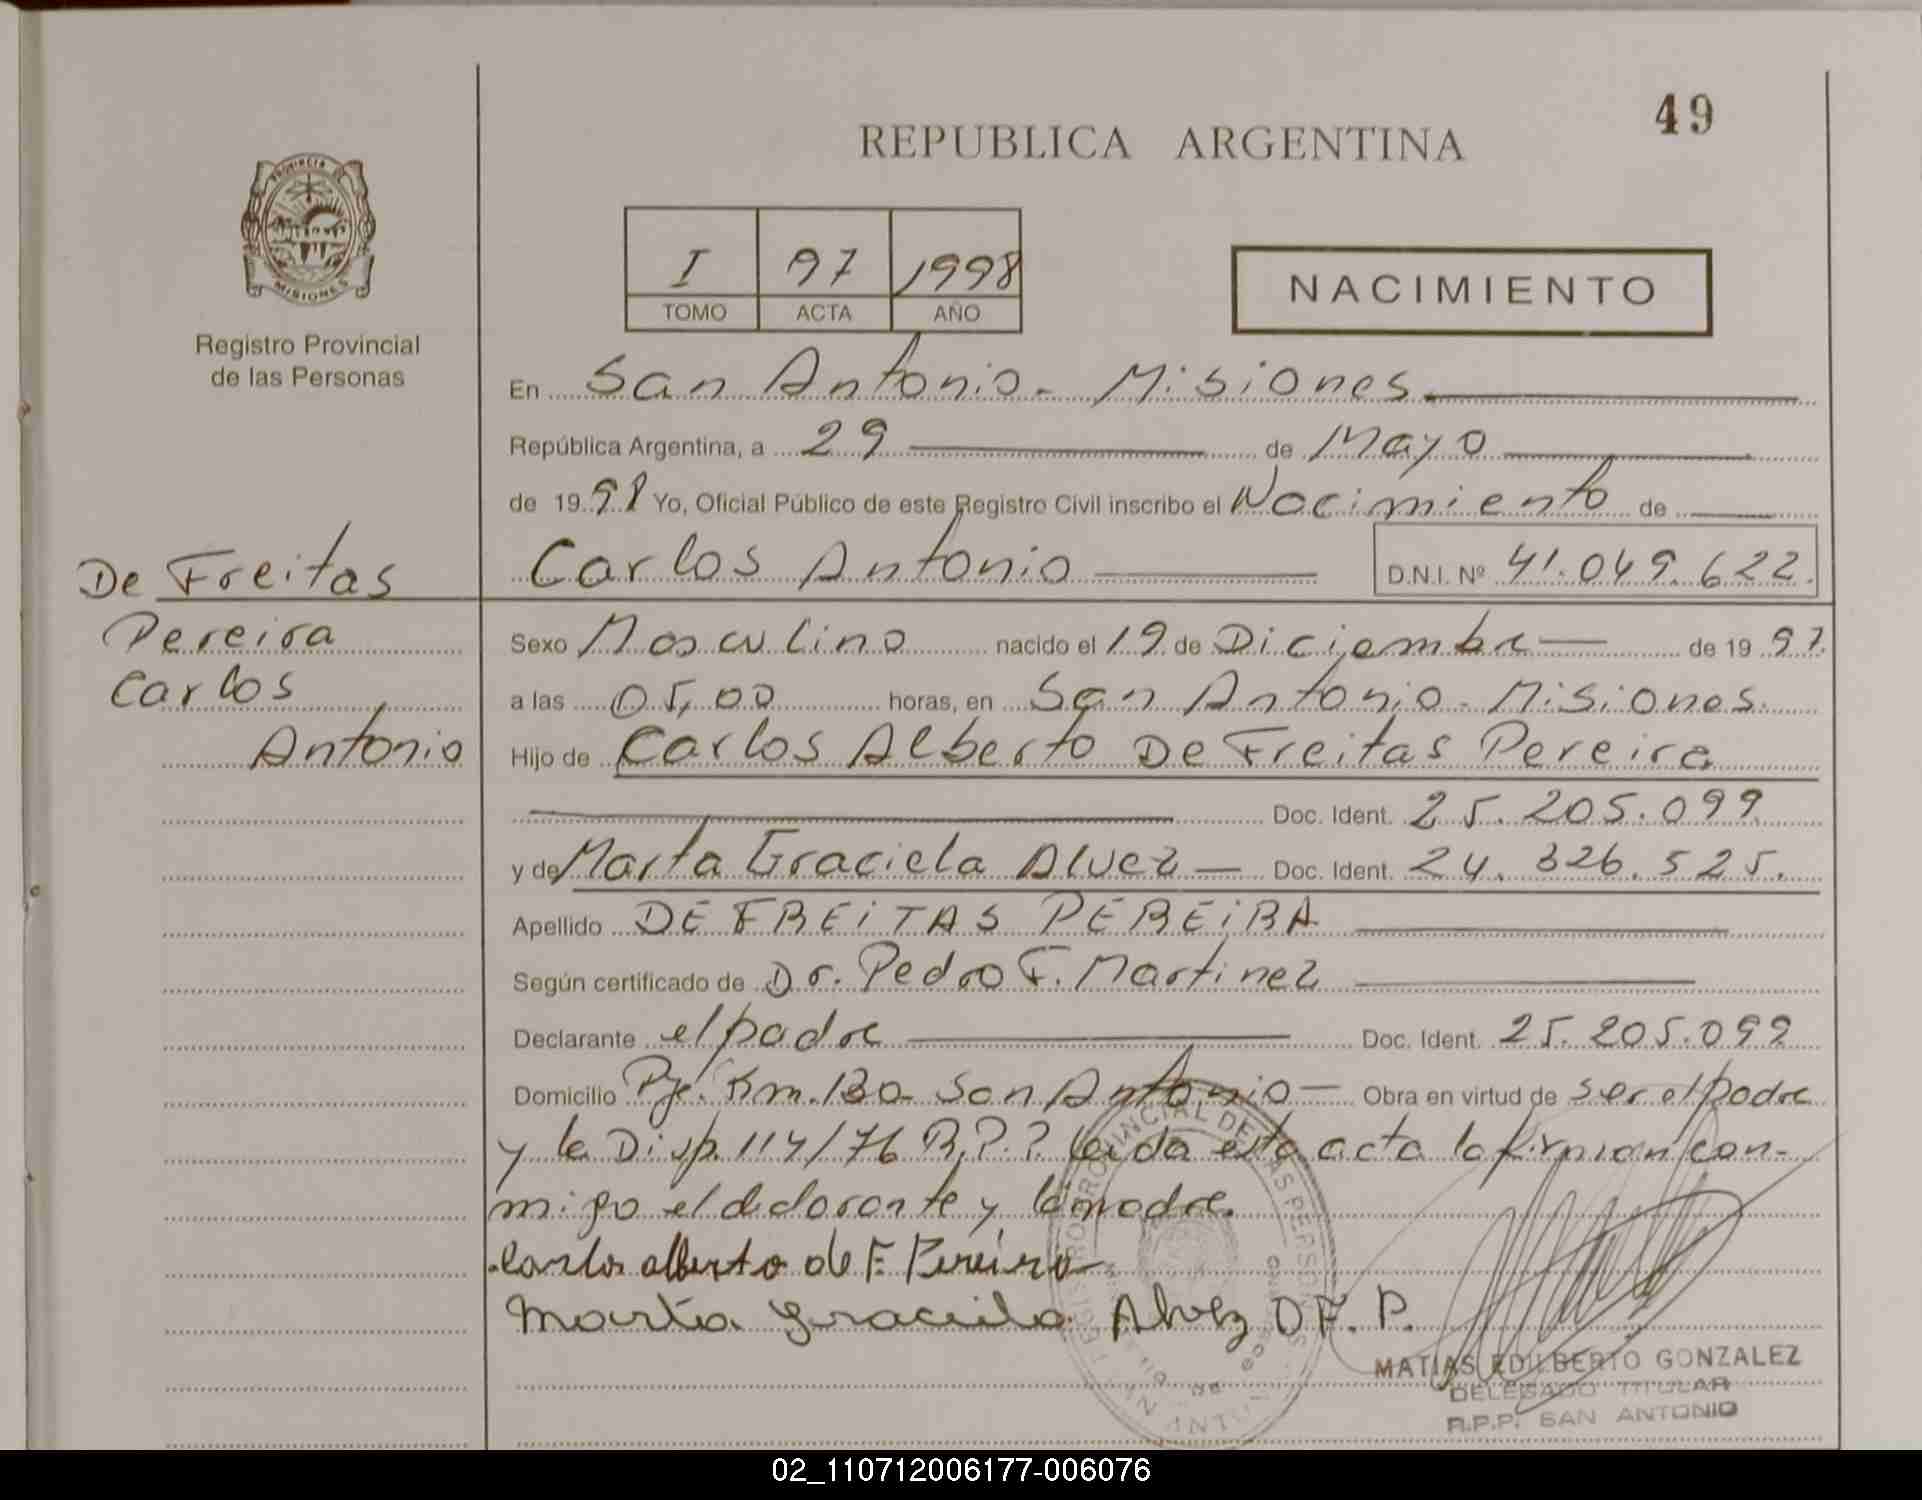 49
REPUBLICA ARGENTINA
PROVINCIA DE
MISIONES
Registro Provincial
de las Personas
I 97 1998
TOMO ACTA AÑO
NACIMIENTO
En San Antonio - Misiones
República Argentina, a 29 de Mayo
de 1998 Yo, Oficial Público de este Registro Civil inscribo el Nacimiento de
Carlos Antonio D.N.I. Nº 41.049.622.
De Freitas
Pereira
Carlos
Antonio
Sexo Masculino nacido el 19 de Diciembre de 1997.
a las 05,00 horas, en San Antonio - Misiones.
Hijo de Carlos Alberto De Freitas Pereira
Doc. Ident. 25.205.099
y de Marta Graciela Alvez Doc. Ident. 24.326.525.
Apellido DE FREITAS PEREIRA
Según certificado de Dr. Pedro F. Martinez
Declarante el padre Doc. Ident. 25.205.099
Domicilio Pje. Km. 130 - San Antonio Obra en virtud de ser el padre
y la Disp. 114/76 R.P.P. leida esta acta la firman con-
migo el declarante y la madre.
Carlos alberto de F. Pereira
Marta Graciela Alvez D F. P.
MATIAS EDILBERTO GONZALEZ
DELEGADO TITULAR
R.P.P. SAN ANTONIO
02_110712006177-006076